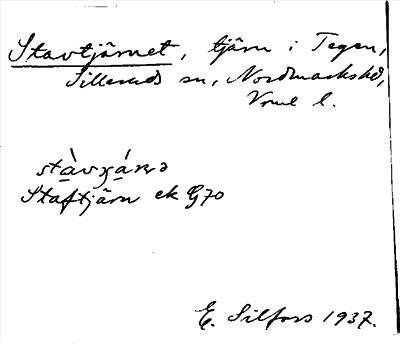 Stavtjärnet, tjärn i Tegen,
Silleruds sn, Nordmarkshd,
Vrml l.
stàvχánə
Staftjärn ek G70
E. Silfors 1937.